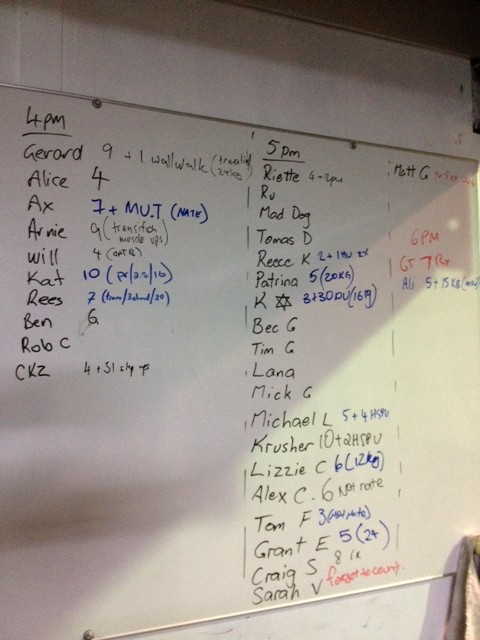 4pm
Gerard 9 + 1 wallwalk (
Alice 4
Ax 7 + MU.T (NATE)
Arnie 9 (transition muscle ups)
Will 4
Kat 10
Rees 7
Ben 6
Rob C
CKZ 4 + 51
5pm
Riette
Ru
Mad Dog
Tomas D
Reece K 2 +
Patrina 5 (20KG)
K ✡ 3+30DU(
Bec G
Tim G
Lana
Mick G
Michael L 5+4 HSPU
Krusher 10+2HSPU
Lizzie C 6 (12kg)
Alex C. 6 Not rate
Tom F 3
Grant E 5 (24)
Craig S 8
Sarah V forgot to count.
Matt G
6PM
GT 7 Rx
Ali 5+15KB